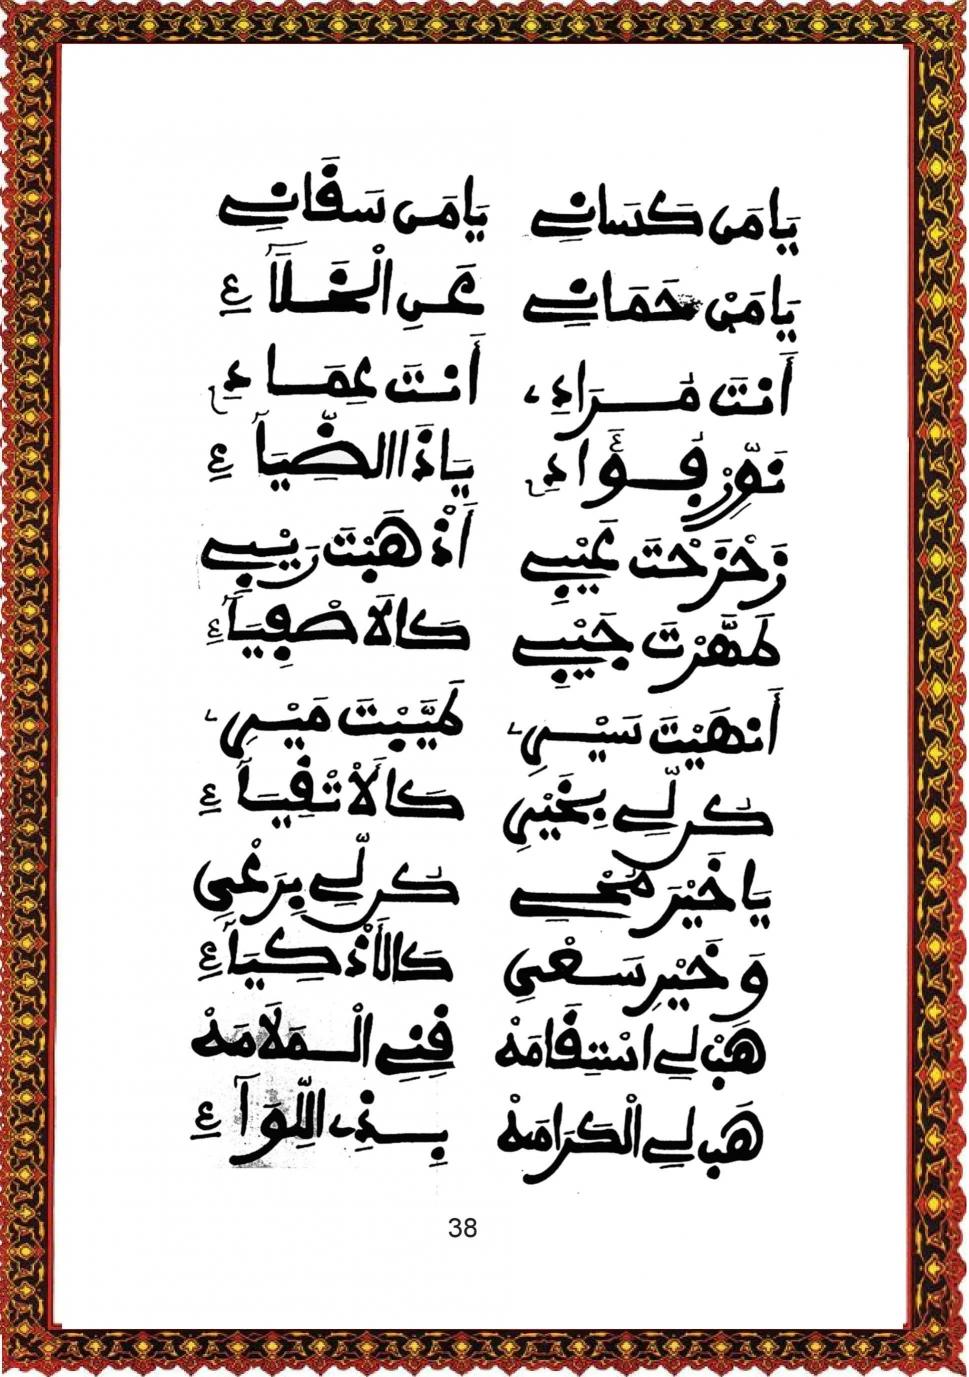 يَا مَن كَسَانِي يَا مَن سَقَانِي
يَا مَنْ حَمَانِي عَنِ الْخَلَآءِ
أَنتَ مُرَادِي أَنتَ عِمَادِي
نَوِّرْ فُؤَادِي يَاذَا الضِّيَآءِ
زَحْزَحْتَ عَيْبِي أَذْهَبْتَ رَيْبِي
طَهَّرْتَ جَيْبِي كَالَاصْفِيَآءِ
أَنهَيْتَ سَيْرِي طَيَّبْتَ مَيْرِي
كُن لِّي بِخَيْرِ كَالَاتْقِيَآءِ
يَا خَيْرَ مُحْيِي كُن لِّي بِرَعْيِ
وَخَيْرِ سَعْيِ كَالْأَذْكِيَآءِ
هَبْ لِي اسْتِقَامَهْ قِنِي الْمَلَامَهْ
هَبْ لِي الْكَرَامَهْ بِذِي اللِّوَآءِ
38